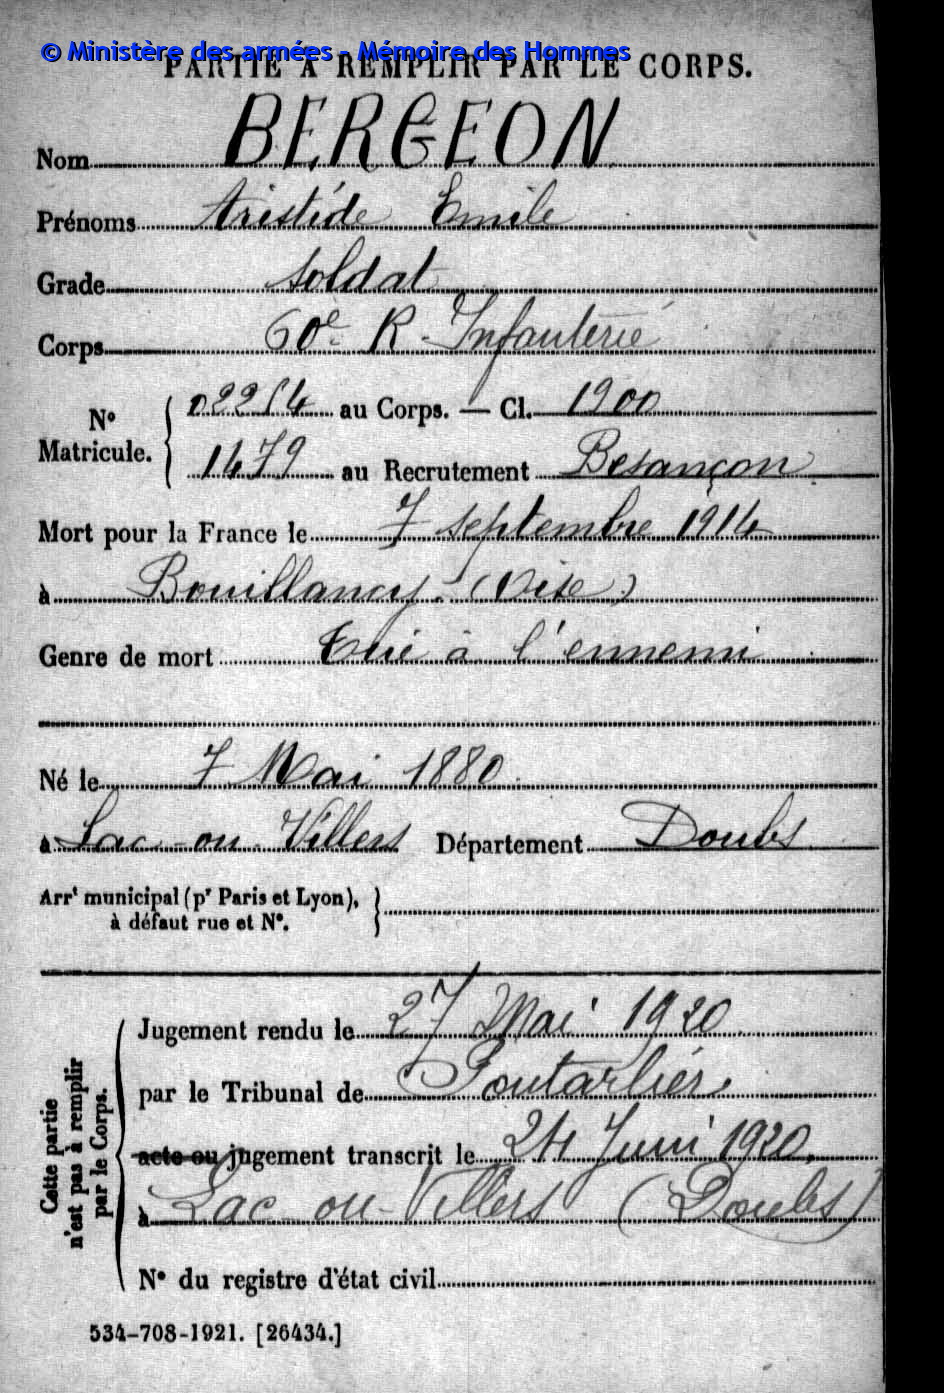 © Ministère des armées - Mémoire des Hommes
PARTIE A REMPLIR PAR LE CORPS.
Nom BERGEON
Prénoms Aristide Emile
Grade Soldat
Corps 60e R. Infanterie
N° Matricule. 02254 au Corps. — Cl. 1900
1479 au Recrutement Besançon
Mort pour la France le 7 septembre 1914
à Bouillancy (Oise)
Genre de mort Tué à l'ennemi
Né le 7 Mai 1880
à Lac-ou-Villers Département Doubs
Arrt municipal (pr Paris et Lyon),
à défaut rue et N°.
Cette partie
n'est pas à remplir
par le Corps.
Jugement rendu le 27 Mai 1920
par le Tribunal de Pontarlier
acte ou jugement transcrit le 24 Juin 1920.
à Lac-ou-Villers (Doubs)
N° du registre d'état civil
534-708-1921. [26434.]